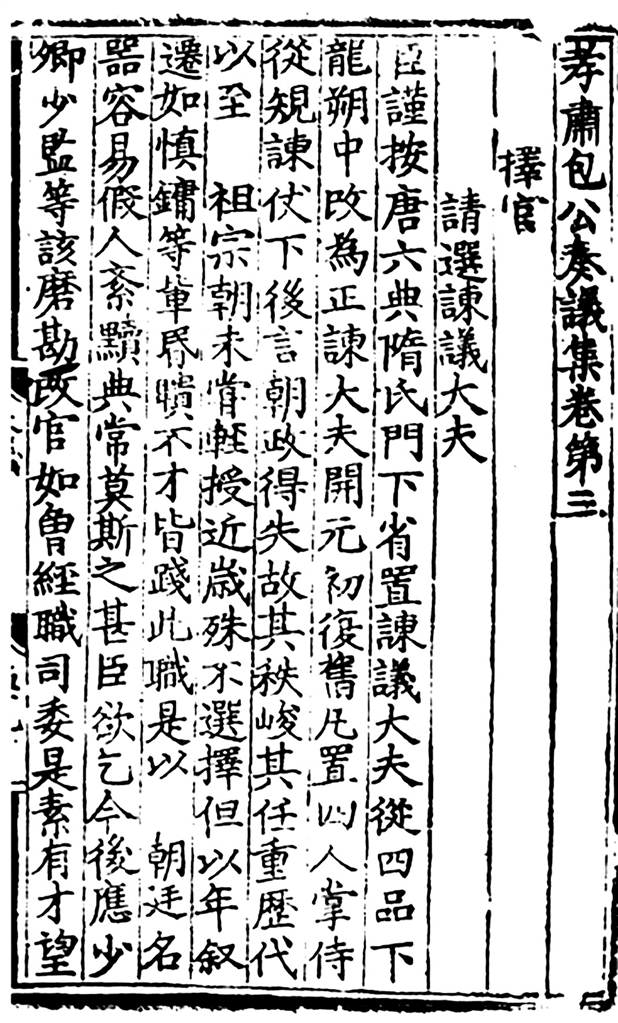 孝肅包公奏議集卷第三
擇官
請選諫議大夫
臣謹按唐六典隋氏門下省置諫議大夫從四品下
龍朔中改為正諫大夫開元初復舊凡置四人掌侍
從規諫仗下後言朝政得失故其秩峻其任重歷代
以至 祖宗朝未甞輕授近歲殊不選擇但以年叙
遷如慎鏞等輩昬聵不才皆踐此職是以 朝廷名
器容易假人紊黷典常莫斯之甚臣欲乞今後應少
卿少監等該磨勘改官如曾經職司委是素有才望